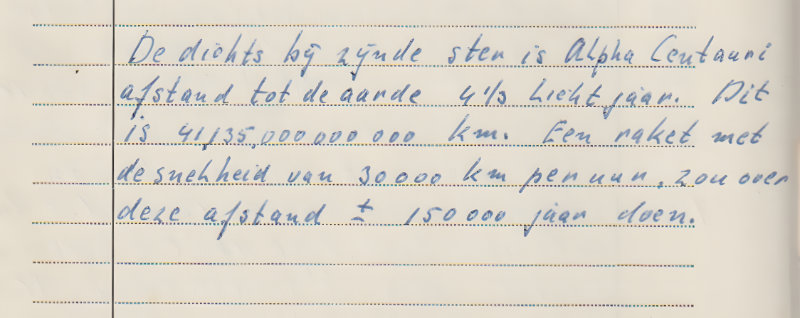 De dichts bij zijnde ster is Alpha Centauri
afstand tot de aarde 4 1/3 Licht jaar. Dit
is 41,135,000 000 000 km. Een raket met
de snelheid van 30000 km per uur, zou over
deze afstand ± 150000 jaar doen.